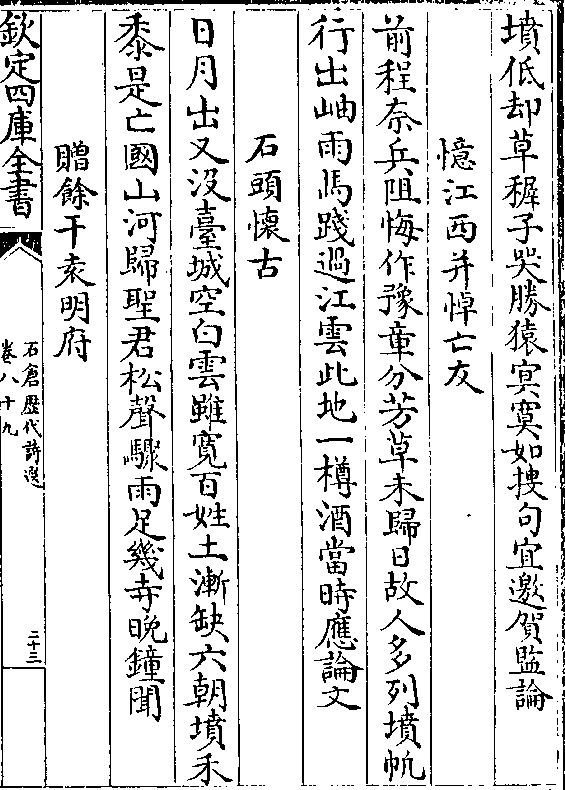 墳低却草穉子哭勝猿寘寞如搜句宜邀賀監論
憶江西并悼亡友
前程奈兵阻悔作豫章分芳草未歸日故人多列墳帆
行出岫雨馬踐過江雲此地一樽酒當時應論文
石頭懷古
日月出又没臺城空白雲雖寛百姓土漸缺六朝墳禾
黍是亡國山河歸聖君松聲驟雨足幾寺晚鐘聞
贈餘干袁明府
欽定四庫全書
石倉歷代詩選
卷八十九
二十三